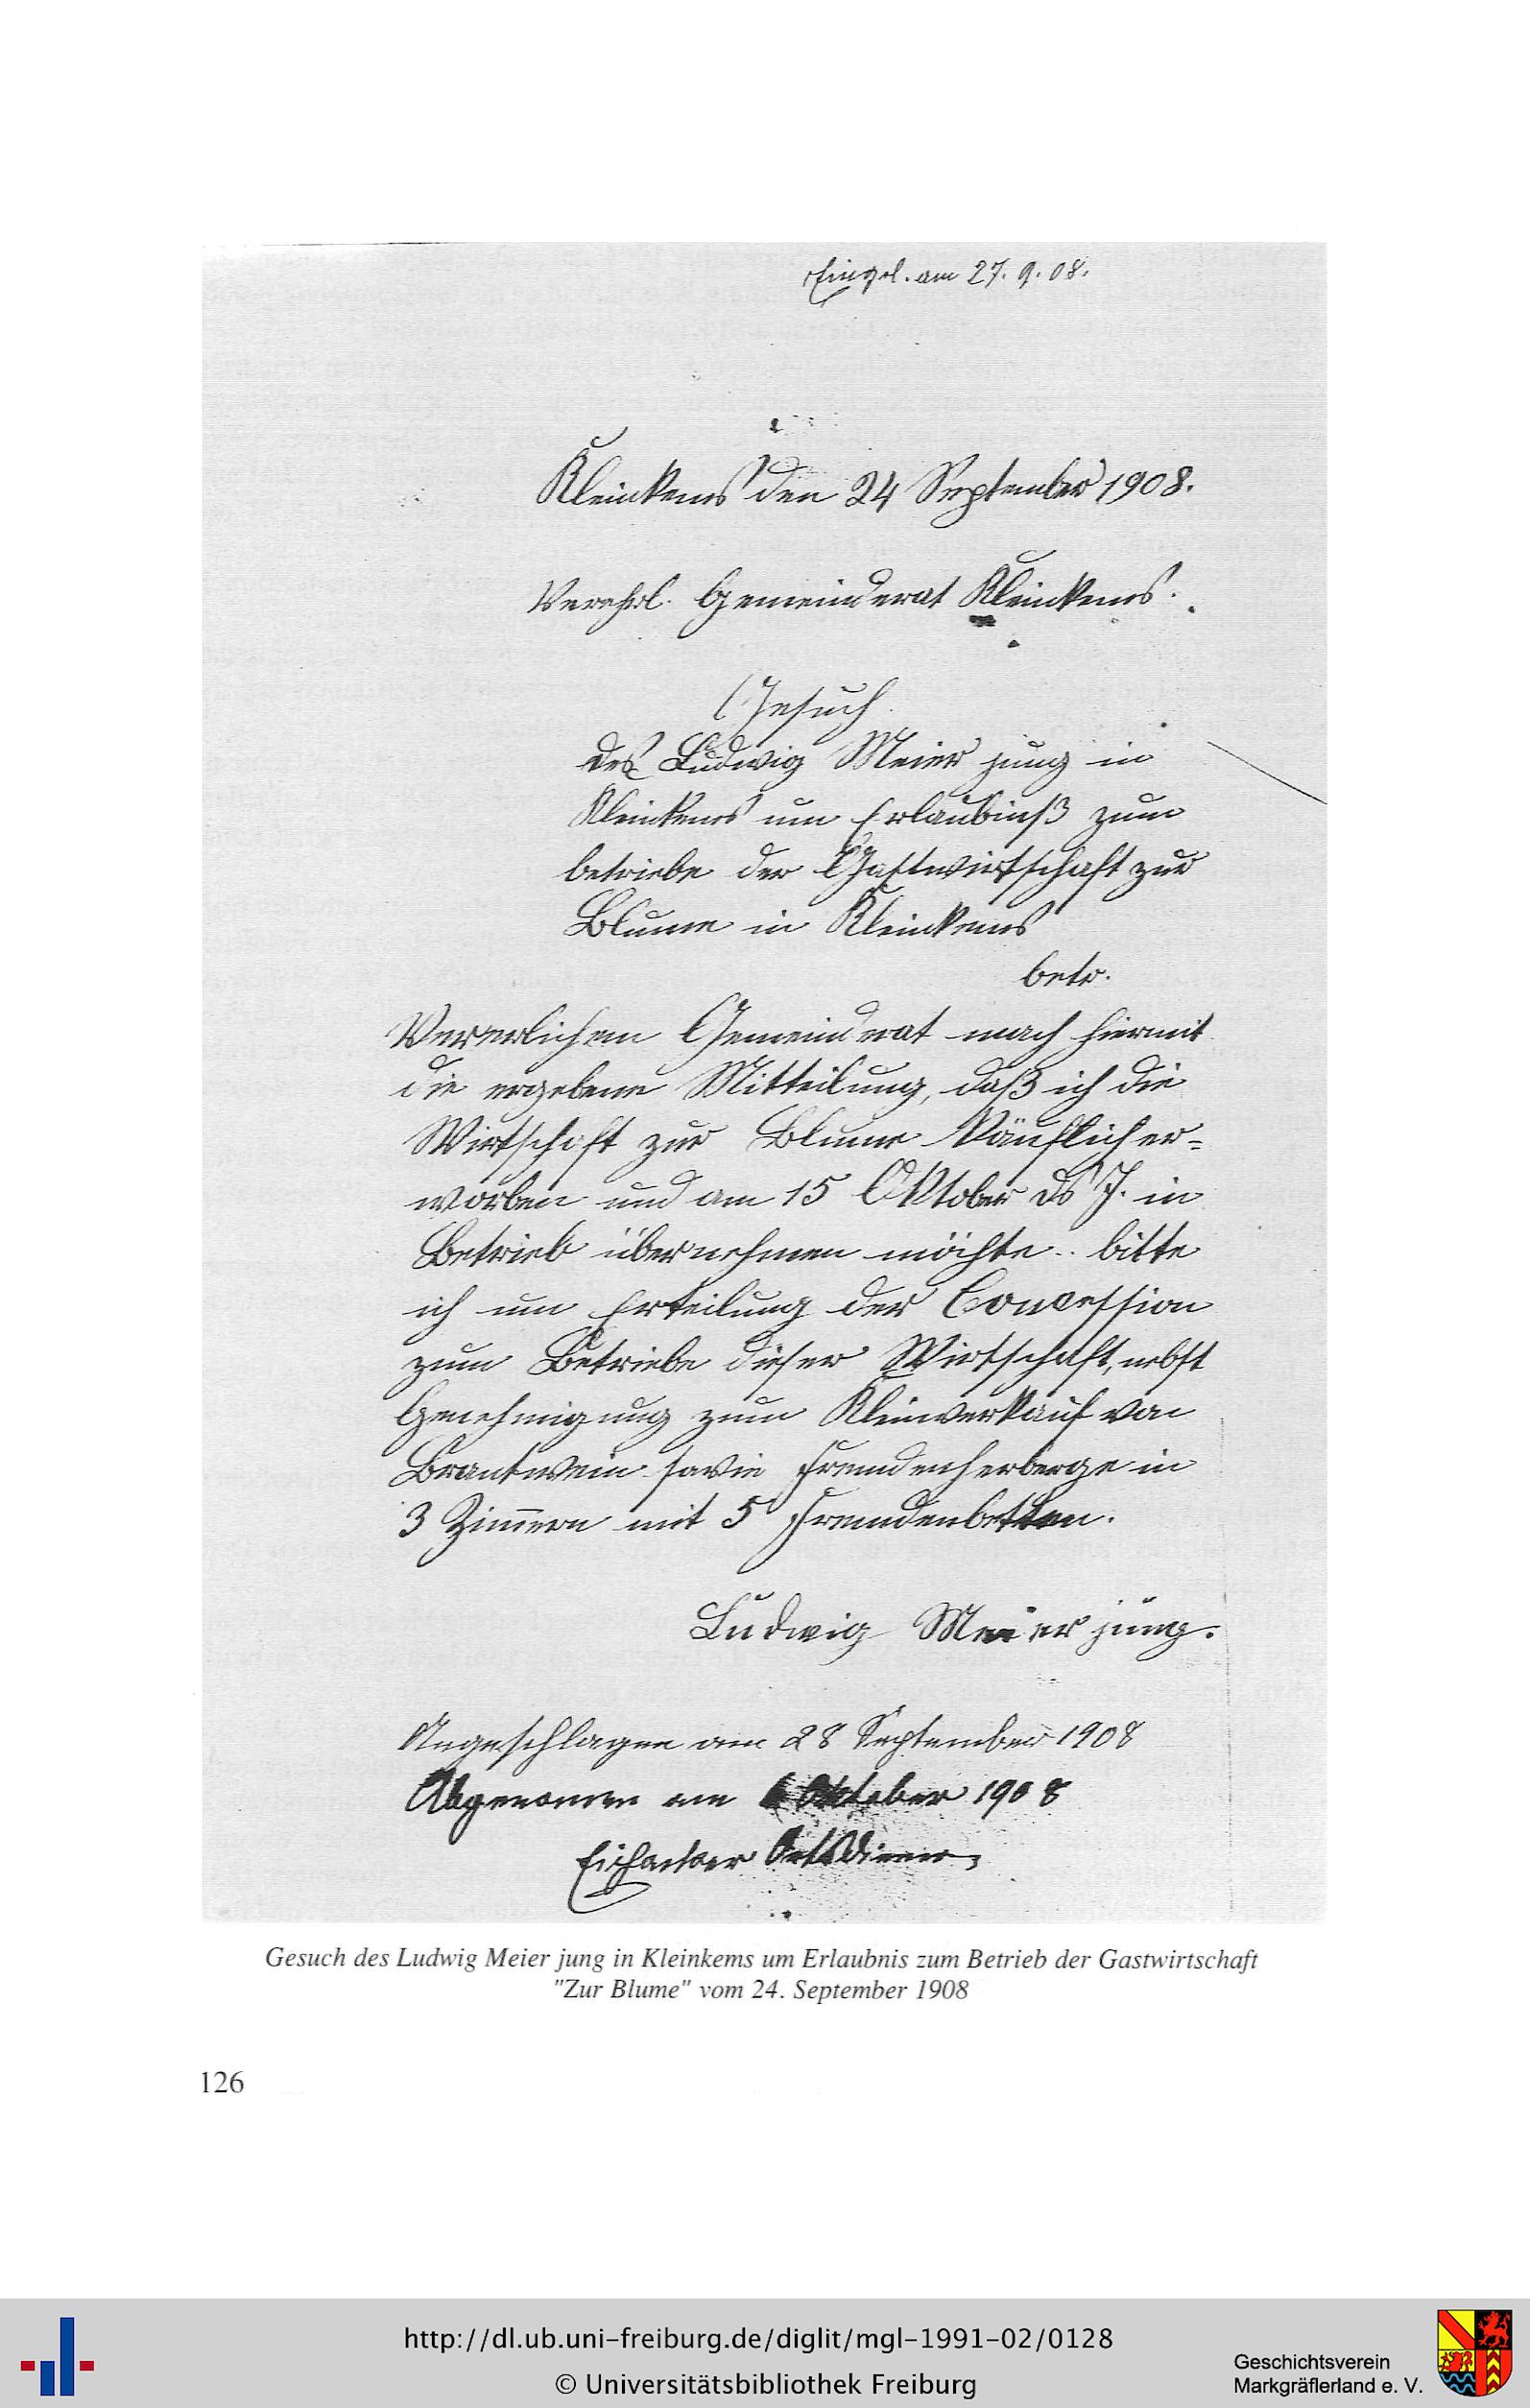 Eingel. am 27. 9. 08.
Kleinkems den 24 September 1908.
Verehrl. Gemeinderat Kleinkems.
Gesuch
des Ludwig Meier jung in
Kleinkems um Erlaubniß zum
betriebe der Gastwirtschaft zur
Blume in Kleinkems
betr.
Vererlichem Gemeinderat mach hiermit
die ergebene Mitteilung, daß ich die
Wirtschaft zur Blume käuflich er=
worben und am 15 Oktober ds J. in
Betrieb übernehmen möchte.. bitte
ich um Erteilung der Concession
zum Betriebe dieser Wirtschaft, nebst
Genehmigung zum Kleinverkauf von
Brantwein sowie Fremdenherberge in
3 Zimmern mit 5 Fremdenbetten.
Ludwig Meier jung.
Angeschlagen am 28 September 1908
Abgenomen am Oktober 1908
Ortsdiener
Gesuch des Ludwig Meier jung in Kleinkems um Erlaubnis zum Betrieb der Gastwirtschaft
"Zur Blume" vom 24. September 1908
126
http://dl.ub.uni-freiburg.de/diglit/mgl-1991-02/0128
© Universitätsbibliothek Freiburg
Geschichtsverein
Markgräflerland e. V.